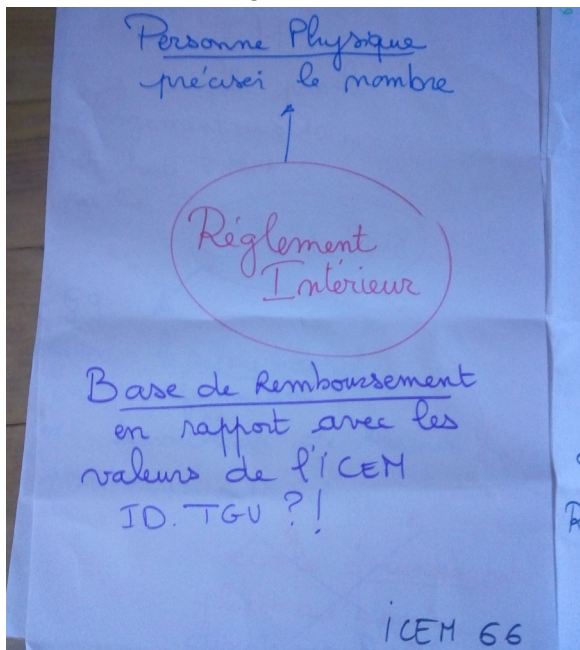 Personne Physique
préciser le nombre
Réglement
Intérieur
Base de Remboursement
en rapport avec les
valeurs de l'ICEM
ID. TGV ?!
ICEM 66